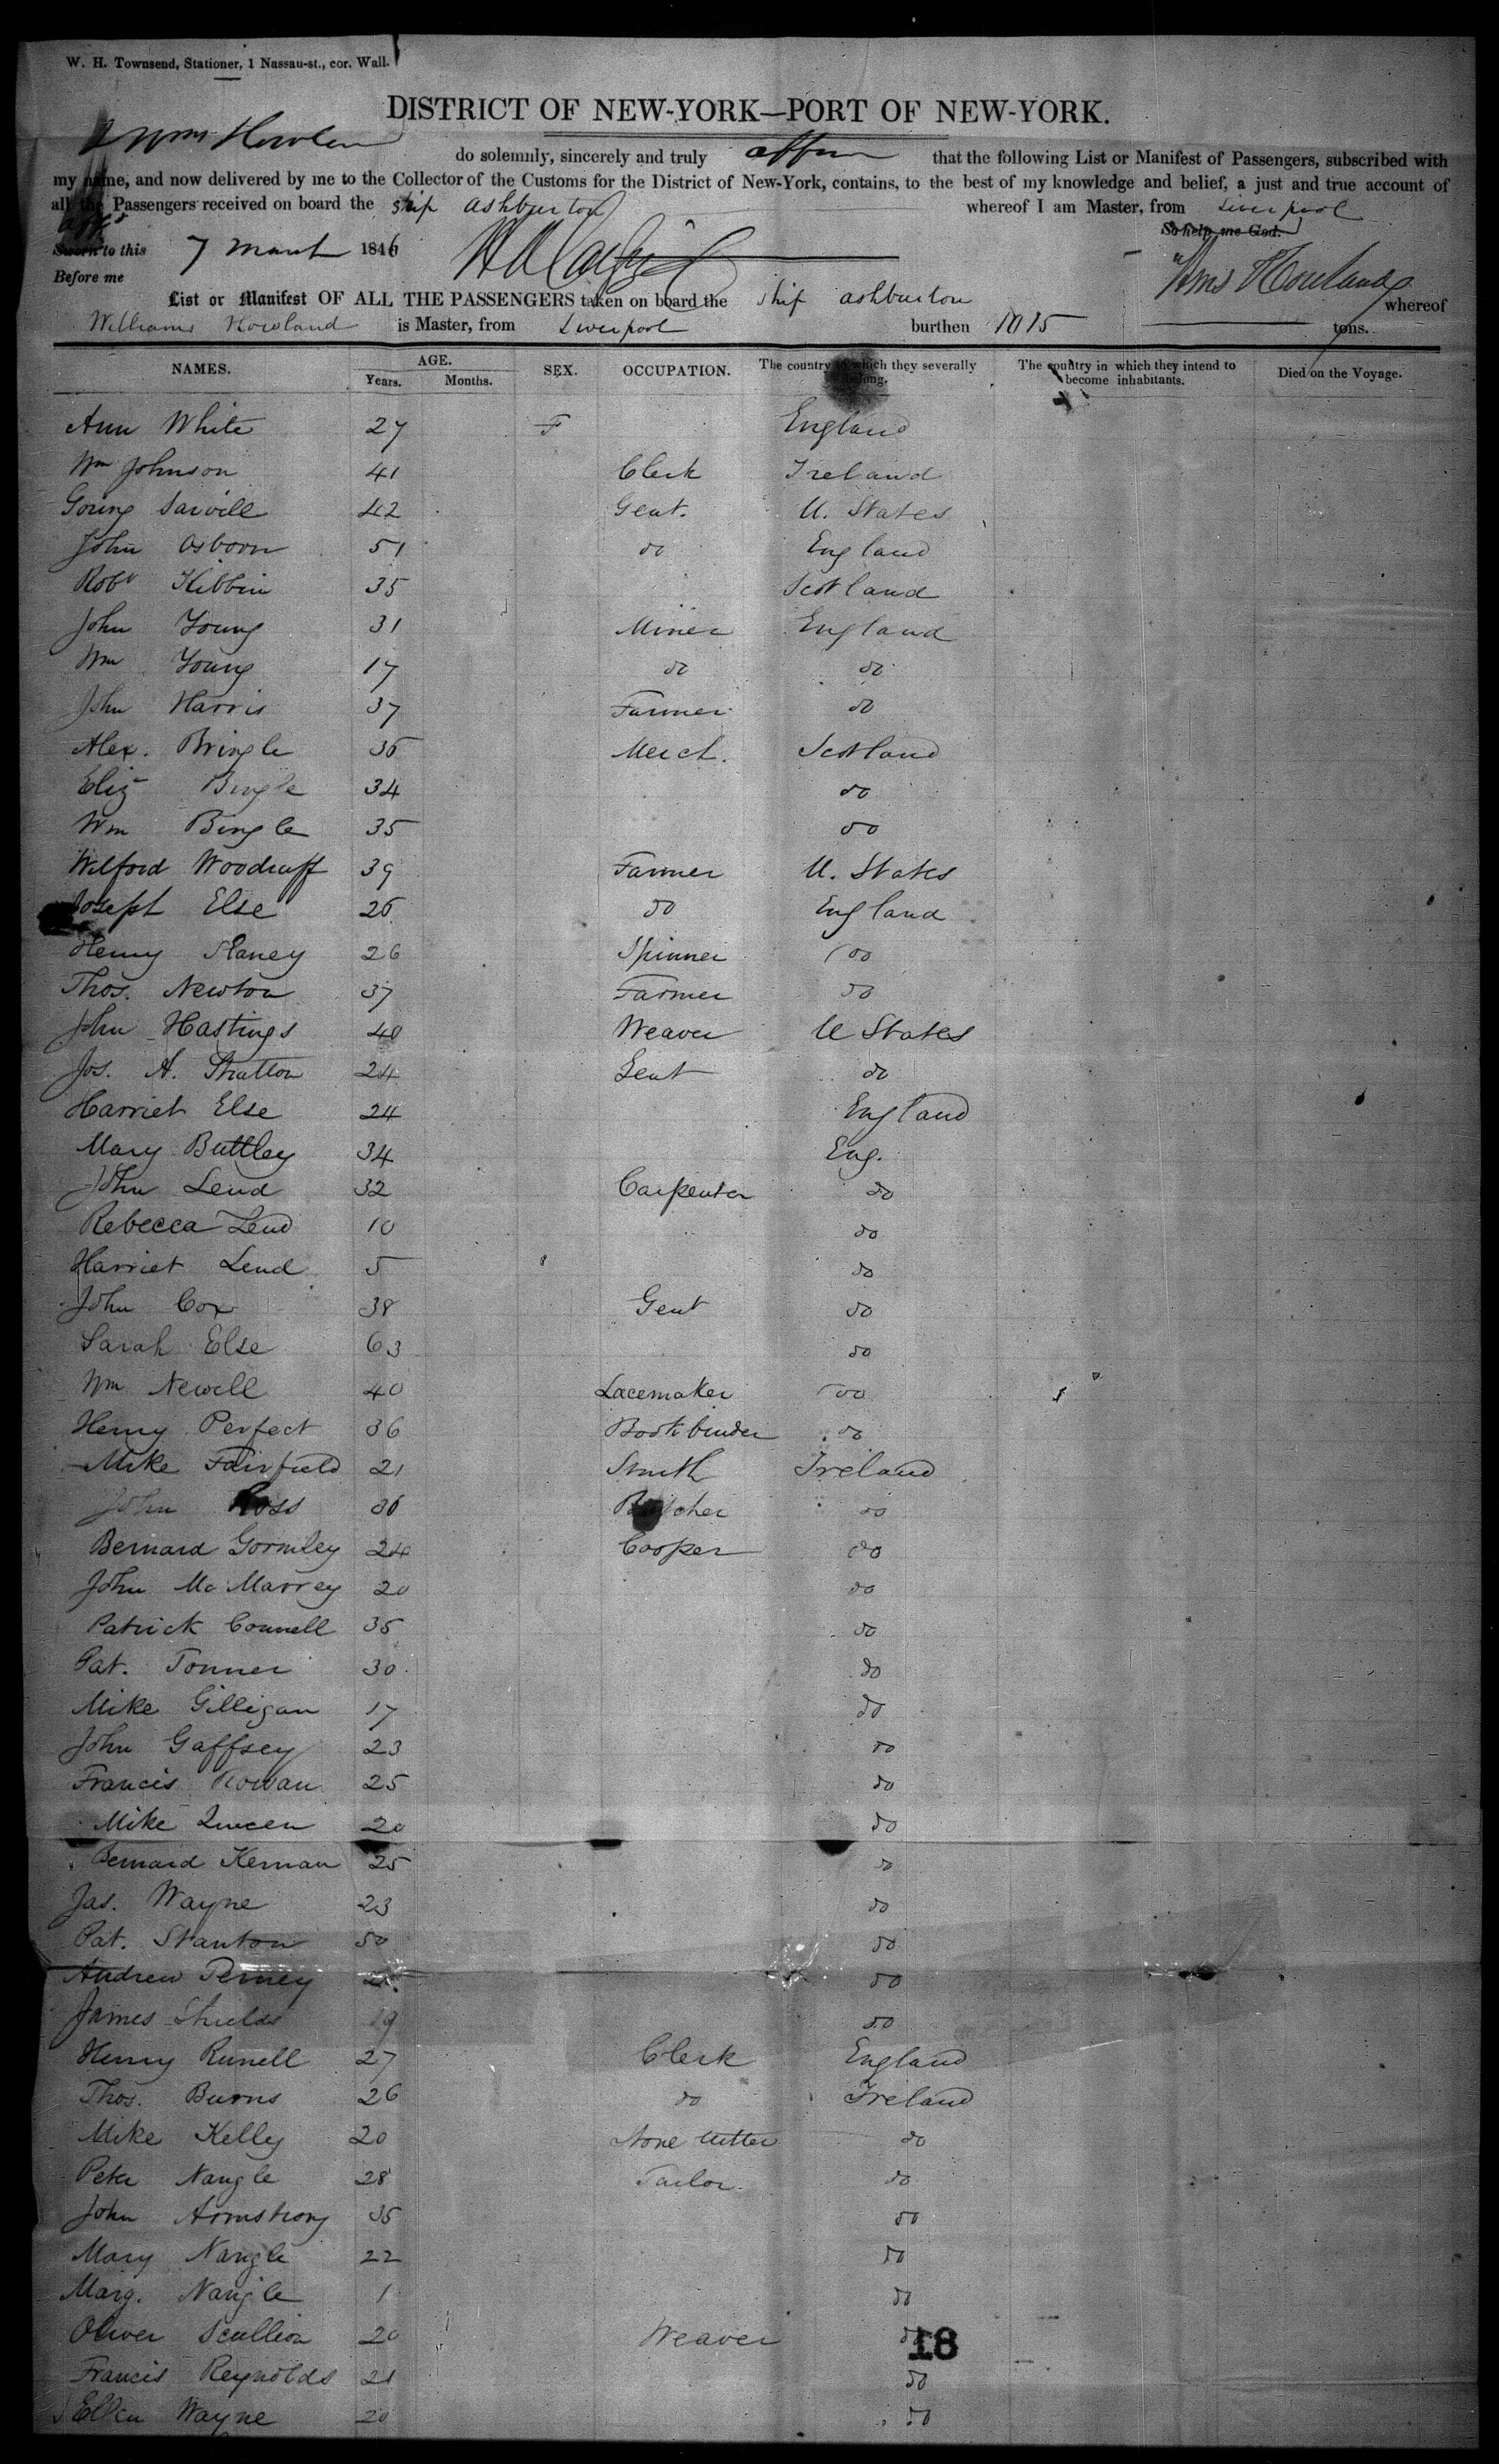 W. H. Townsend, Stationer, 1 Nassau-st., cor. Wall.
DISTRICT OF NEW-YORK—PORT OF NEW-YORK.
I Wm Howland do solemnly, sincerely and truly affirm that the following List or Manifest of Passengers, subscribed with
my name, and now delivered by me to the Collector of the Customs for the District of New-York, contains, to the best of my knowledge and belief, a just and true account of
all the Passengers received on board the ship Ashburton whereof I am Master, from Liverpool
So help me God.
Sworn to this 7 March 1846
Before me
Wms Howland
List or Manifest OF ALL THE PASSENGERS taken on board the ship Ashburton whereof
Williams Howland is Master, from Liverpool burthen 1015 tons.
NAMES. AGE. SEX. OCCUPATION. The country to which they severally belong. The country in which they intend to become inhabitants. Died on the Voyage.
Years. Months.
Ann White 27 F England
Wm Johnson 41 Clerk Ireland
Going Saville 42 Gent. U. States
John Osborn 51 do England
Robt Kibbin 35 Scotland
John Young 31 Miner England
Wm Young 17 do do
John Harris 37 Farmer do
Alex. Bringle 36 Merch. Scotland
Eliz Bingle 34 do
Wm Bingle 35 do
Wilford Woodruff 39 Farmer U. States
Joseph Else 26 do England
Henry Slaney 26 Spinner do
Thos. Newton 37 Farmer do
John Hastings 40 Weaver U States
Jos. A. Stratton 24 Gent do
Harriet Else 24 England
Mary Buttley 34 Eng.
John Lend 32 Carpenter do
Rebecca Lend 10 do
Harriet Lend 5 do
John Cox 38 Gent do
Sarah Else 63 do
Wm Newell 40 Lacemaker do
Henry Perfect 36 Bookbinder do
Mike Fairfield 21 Smith Ireland
John Ross 36 Butcher do
Bernard Gormley 24 Cooper do
John McMarrey 20 do
Patrick Connell 35 do
Pat. Tonner 30 do
Mike Gilligan 17 do
John Gaffsey 23 do
Francis Rowan 25 do
Mike Queen 20 do
Bernard Kernan 25 do
Jas. Wayne 23 do
Pat. Stanton 50 do
Andrew Perney do
James Shields 19 do
Henry Runell 27 Clerk England
Thos. Burns 26 do Ireland
Mike Kelly 20 Stone Cutter do
Peter Nangle 28 Tailor do
John Armstrong 35 do
Mary Nangle 22 do
Marg. Nangle 1 do
Oliver Scullion 20 Weaver do
18
Francis Reynolds 21 do
Ellen Wayne 20 do